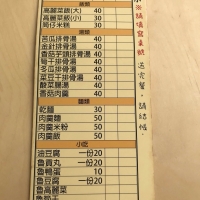 高麗菜飯(大) 40
高麗菜飯(小) 30
筒仔米糕 30
湯類
苦瓜排骨湯 40
金針排骨湯 40
香菇芋頭排骨湯 40
筍干排骨湯 40
冬瓜排骨湯 40
菜豆干排骨湯 40
酸菜腸湯 30
香菇肉羹 40
麵類
乾麵 30
肉羹麵 50
肉羹米粉 50
肉羹 50
小吃
油豆腐 一份20
魯貢丸 一份20
魯鴨蛋 10
魯豆腐 一份20
魯高麗菜
※請填寫桌號
送完餐,請結帳